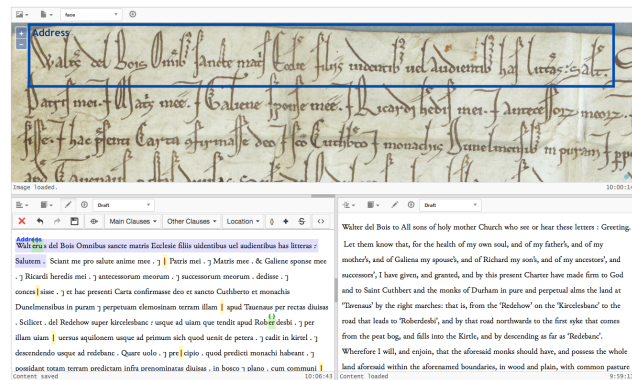 face
Address
Walt' del Bois Omib' sancte mat's Eccl'e filiis uidentib' uel Audientib' has litt'as : Salt'.
Patris mei . ⁊ Mat's mee . ⁊ Galiene sponse mee . ⁊ Ricardi hedis mei . ⁊ Antecessor meor
sisse . ⁊ hac psenti Carta ɔfirmasse deo ⁊ sco Cuthbto ⁊ monachis Dunelmensib' in puram ⁊ ppe
Image loaded.
10:00:14
Draft
Main Clauses
Other Clauses
Location
Address
Walt erus del Bois Omnibus sancte matris Ecclesie filiis uidentibus uel audientibus has litteras :
Salutem . Sciant me pro salute anime mee . ⁊ | Patris mei . ⁊ Matris mee . & Galiene sponse mee
. ⁊ Ricardi heredis mei . ⁊ antecessorum meorum . ⁊ successorum meorum . dedisse . ⁊
conces|sisse . ⁊ et hac presenti Carta confirmasse deo et sancto Cuthberto et monachis
Dunelmensibus in puram ⁊ perpetuam elemosinam terram illam | apud Tauenaus per rectas diuisas
. Scilicet . del Redehow super kircelesbanc : usque ad uiam que tendit apud Roberdesbi . ⁊ per
illam uiam | uersus aquilonem usque ad primum sich quod uenit de petera . ⁊ cadit in kirtel . ⁊
descendendo usque ad redebanc . Quare uolo . ⁊ pre|cipio . quod predicti monachi habeant . ⁊
possidant totam terram predictam infra prenominatas diuisas . in bosco ⁊ plano . cum communi |
Content saved
10:06:43
Draft
Walter del Bois to All sons of holy mother Church who see or hear these letters : Greeting.
Let them know that, for the health of my own soul, and of my father's, and of my
mother's, and of Galiena my spouse's, and of Richard my son's, and of my ancestors', and
successors', I have given, and granted, and by this present Charter have made firm to God
and to Saint Cuthbert and the monks of Durham in pure and perpetual alms the land at
'Tavenaus' by the right marches: that is, from the 'Redehow' on the 'Kircelesbanc' to the
road that leads to 'Roberdesbi', and by that road northwards to the first syke that comes
from the peat bog, and falls into the Kirtle, and by descending as far as 'Redebanc'.
Wherefore I will, and enjoin, that the aforesaid monks should have, and possess the whole
land aforesaid within the aforenamed boundaries, in wood and plain, with common pasture
Content loaded